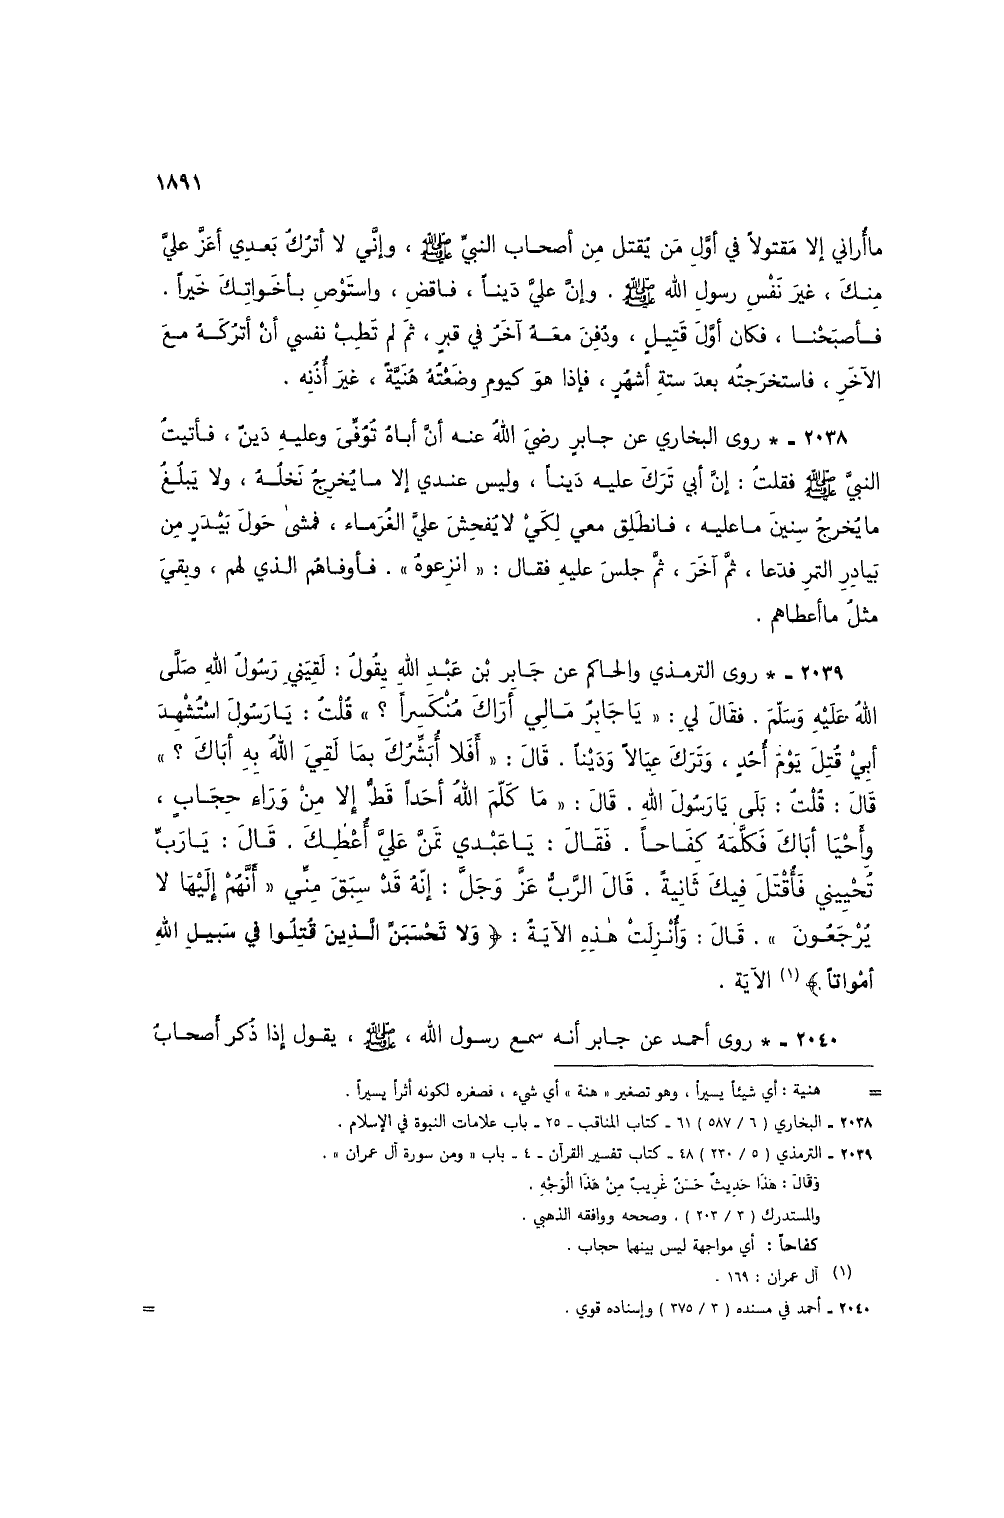 ١٨٩١
ماأُراني إلا مَقتولاً في أوَّلِ مَن يُقتل مِن أصحاب النبيِّ ﷺ ، وإنَّي لا أترُكُ بَعدِي أعَزَّ عليَّ
مِنكَ ، غيرَ نَفْسِ رسولِ الله ﷺ . وإنَّ عليَّ دَيناً ، فاقضِ ، واستَوْصِ بأخَواتِكَ خَيراً .
فأصبَحْنا ، فكان أوَّلَ قَتيلٍ ، ودُفِنَ معَهُ آخَرُ في قبرٍ ، ثمَّ لم تَطِبْ نفسي أنْ أترُكَهُ معَ
الآخَرِ ، فاستخرَجتُه بعدَ ستةِ أشهُرٍ ، فإذا هوَ كيومِ وضَعْتُهُ هُنَيَّةً ، غيرَ أُذُنِه .
٢٠٣٨ ـ * روى البخاري عن جابرٍ رضيَ اللهُ عنه أنَّ أباهُ تُوُفِّيَ وعليهِ دَينٌ ، فأتيتُ
النبيَّ ﷺ فقلتُ : إنَّ أبي تَرَكَ عليه دَيناً ، وليس عندي إلا مايُخرِجُ نَخلُهُ ، ولا يَبلُغُ
مايُخرِجُ سِنينَ ماعليه ، فانطَلِق معي لِكَيْ لايُفحِشَ عليَّ الغُرَماء ، فمشىٰ حَولَ بَيْدَرٍ مِن
بَيادِرِ التمرِ فدَعا ، ثمَّ آخَرَ ، ثمَّ جلسَ عليهِ فقال : « انزِعوهُ » . فأوفاهُم الذي لهم ، وبقيَ
مثلُ ماأعطاهم .
٢٠٣٩ ـ * روى الترمذي والحاكم عن جَابِرِ بْنِ عَبْدِ اللهِ يقُولُ : لَقِيَنِي رَسُولُ اللهِ صَلَّى
اللهُ عَلَيْهِ وَسَلَّمَ . فقَالَ لي : « يَاجَابِرُ مَالِي أَرَاكَ مُنْكَسِراً ؟ » قُلْتُ : يَارَسُولَ اسْتُشْهِدَ
أبيْ قُتِلَ يَوْمَ أُحُدٍ ، وَتَرَكَ عِيَالاً وَدَيْناً . قَالَ : « أَفَلا أُبَشِّرُكَ بمَا لَقِيَ اللهُ بِهِ أبَاكَ ؟ »
قَالَ : قُلْتُ : بَلَى يَارَسُولَ اللهِ . قَالَ : « مَا كَلَّمَ اللهُ أحَداً قَطُّ إلا مِنْ وَرَاءِ حِجَابٍ ،
وأَحْيَا أبَاكَ فَكَلَّمَهُ كِفَاحاً . فَقَالَ : يَاعَبْدِي تَمَنَّ عَلَيَّ أُعْطِكَ . قَالَ : يَارَبِّ
تُحْيِيني فَأُقْتَلَ فِيكَ ثَانِيةً . قَالَ الرَّبُّ عَزَّ وَجَلَّ : إنَّهُ قَدْ سبَقَ مِنِّي « أَنَّهُمْ إلَيْهَا لا
يُرْجَعُونَ » . قَالَ : وَأُنْزِلَتْ هٰذِهِ الآيَةُ : ﴿ وَلا تَحْسَبَنَّ الَّذِينَ قُتِلُوا في سَبيلِ اللهِ
أمْواتاً ﴾ (١) الآيَة .
٢٠٤٠ ـ * روى أحمد عن جابر أنه سمع رسول الله ، ﷺ ، يقول إذا ذُكر أَصحابُ
= هنية : أي شيئاً يسيراً ، وهو تصغير « هنة » أي شيء ، فصغره لكونه أثراً يسيراً .
٢٠٣٨ ـ البخاري ( ٦ / ٥٨٧ ) ٦١ ـ كتاب المناقب ـ ٢٥ ـ باب علامات النبوة في الإسلام .
٢٠٣٩ ـ الترمذي ( ٥ / ٢٣٠ ) ٤٨ ـ كتاب تفسير القرآن ـ ٤ ـ باب « ومن سورة آل عمران » .
وَقالَ : هَذَا حَدِيثٌ حَسَنٌ غَرِيبٌ مِنْ هَذَا الْوَجْهِ .
والمستدرك ( ٣ / ٢٠٣ ) . وصححه ووافقه الذهبي .
كفاحاً : أي مواجهة ليس بينهما حجاب .
(١) آل عمران : ١٦٩ .
٢٠٤٠ ـ أحمد في مسنده ( ٣ / ٣٧٥ ) وإسناده قوي . =